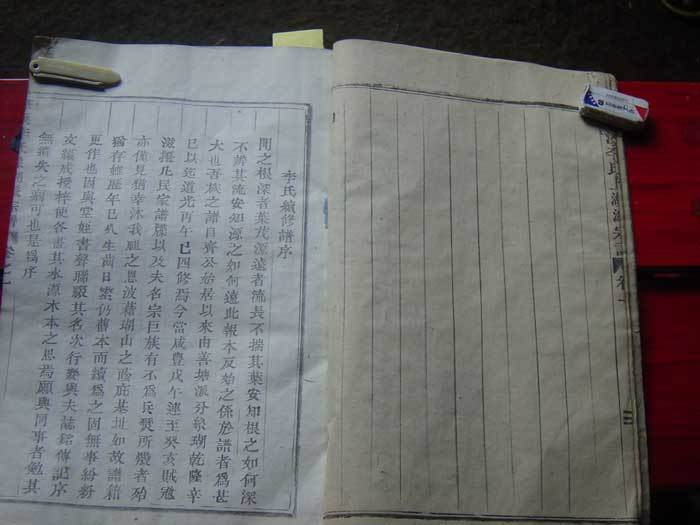 李氏續修譜序
聞之根深者葉茂源遠者流長不揣其葉安知根之如何深
不辨其流安知源之如何遠此報本反始之係於譜者為甚
大也吾族之譜自齊公始居以來由善塘派分象瑚乾隆辛
巳以迄道光丙午已四修焉今當咸豐戊午連至癸亥賊逆
滋擾凡民家譜牒以及夫名宗巨族有不為兵燹所燬者殆
亦僅見猶幸沐我祖之恩波藉瑚山之蔭庇基址如故譜籍
猶存雖歷年已久生齒日繁仍舊本而續為之固無事紛紛
更作也因與堂姪書聲聯其名次行業與夫誌銘傳記序
文編成授梓使各盡其水源木本之思焉願與同事者勉其
無失之病可也是為序
李氏 宗譜 卷